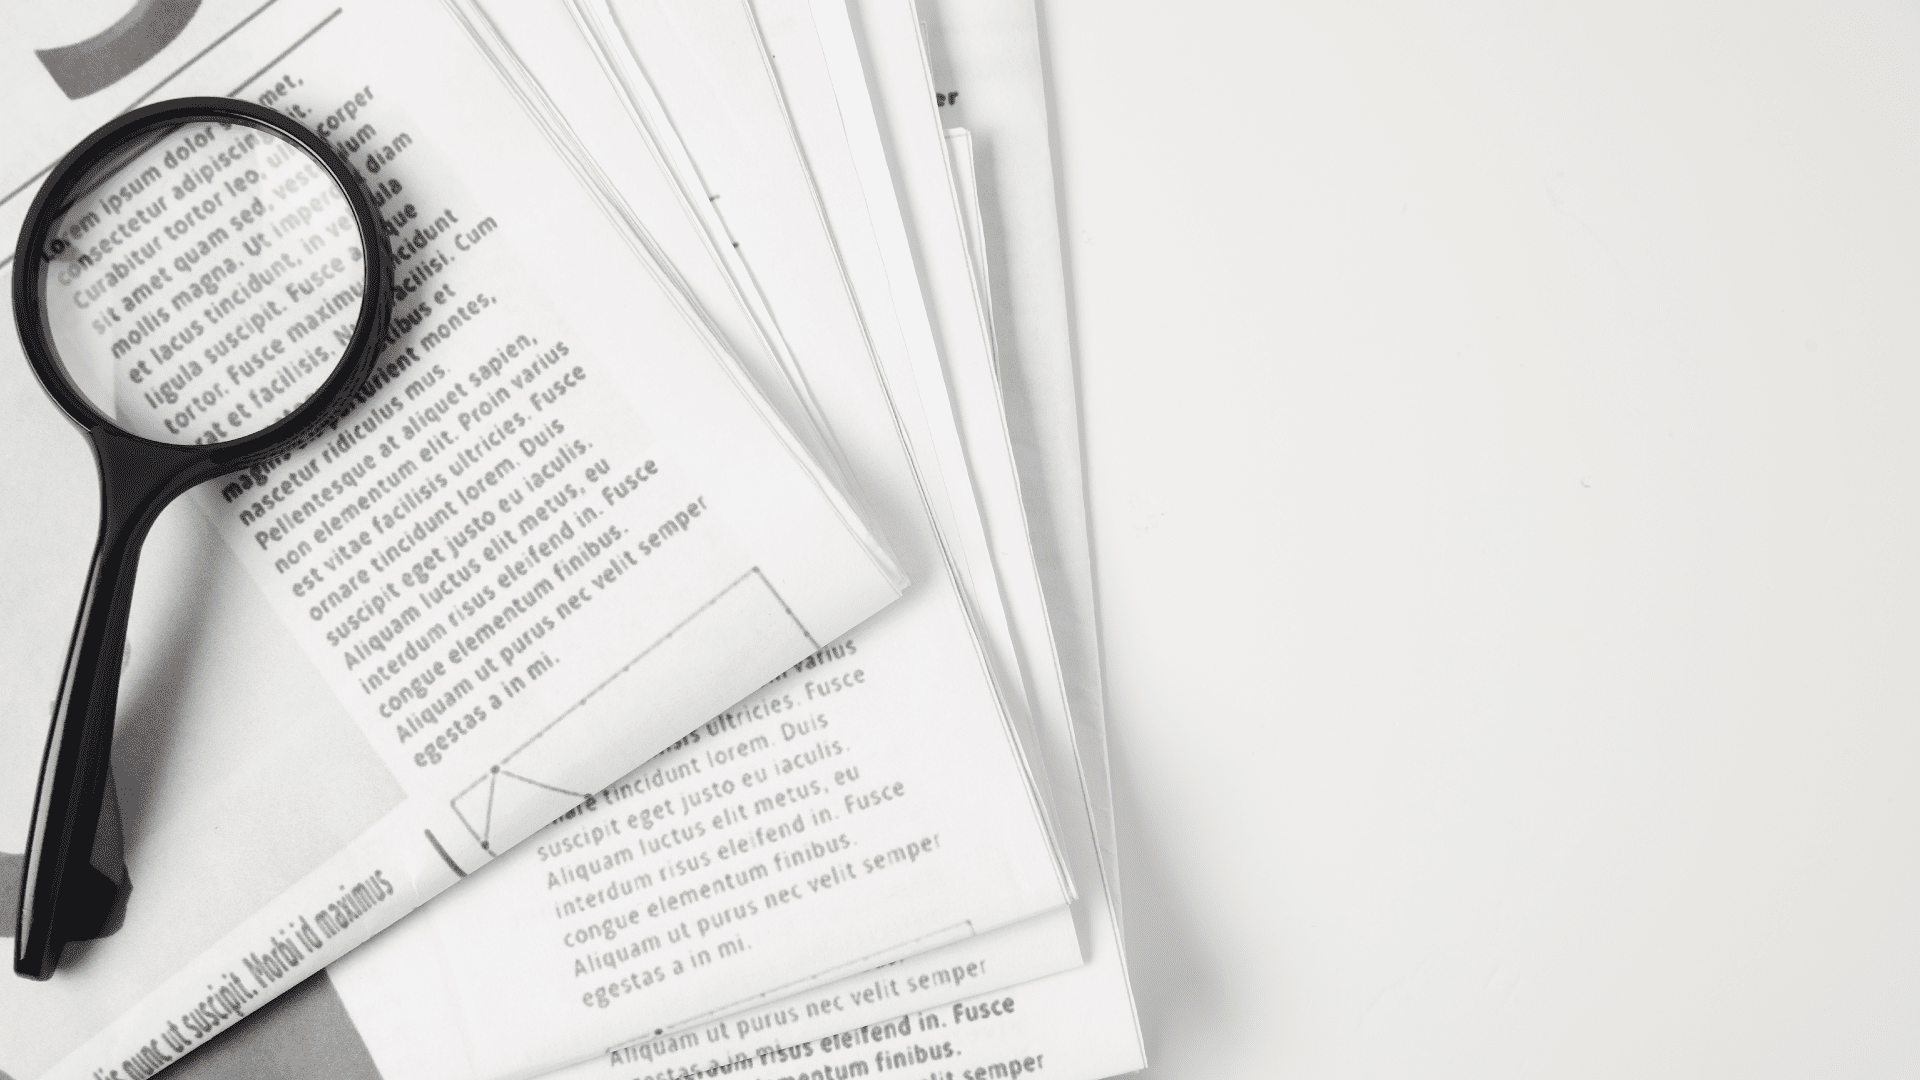 Lorem ipsum dolor met,
consectetur adipiscing it.
Curabitur tortor leo, corper
sit amet quam sed,
mollis magna. Ut diam
et lacus tincidunt, in
ligula suscipit. Fusce a
tortor. Fusce maximu ncidunt
et facilisis. acilisi. Cum
et
montes,
nascetur ridiculus mus.
Pellentesque at aliquet sapien,
non elementum elit. Proin varius
est vitae facilisis ultricies. Fusce
ornare tincidunt lorem. Duis
suscipit eget justo eu iaculis.
Aliquam luctus elit metus, eu
interdum risus eleifend in. Fusce
congue elementum finibus.
Aliquam ut purus nec velit semper
egestas a in mi.
nunc ut suscipit. Morbi id maximus
er
varius
ultricies. Fusce
tincidunt lorem. Duis
suscipit eget justo eu iaculis.
Aliquam luctus elit metus, eu
interdum risus eleifend in. Fusce
congue elementum finibus.
Aliquam ut purus nec velit semper
egestas a in mi.
Aliquam ut purus nec velit semper
risus eleifend in. Fusce
finibus.
semper